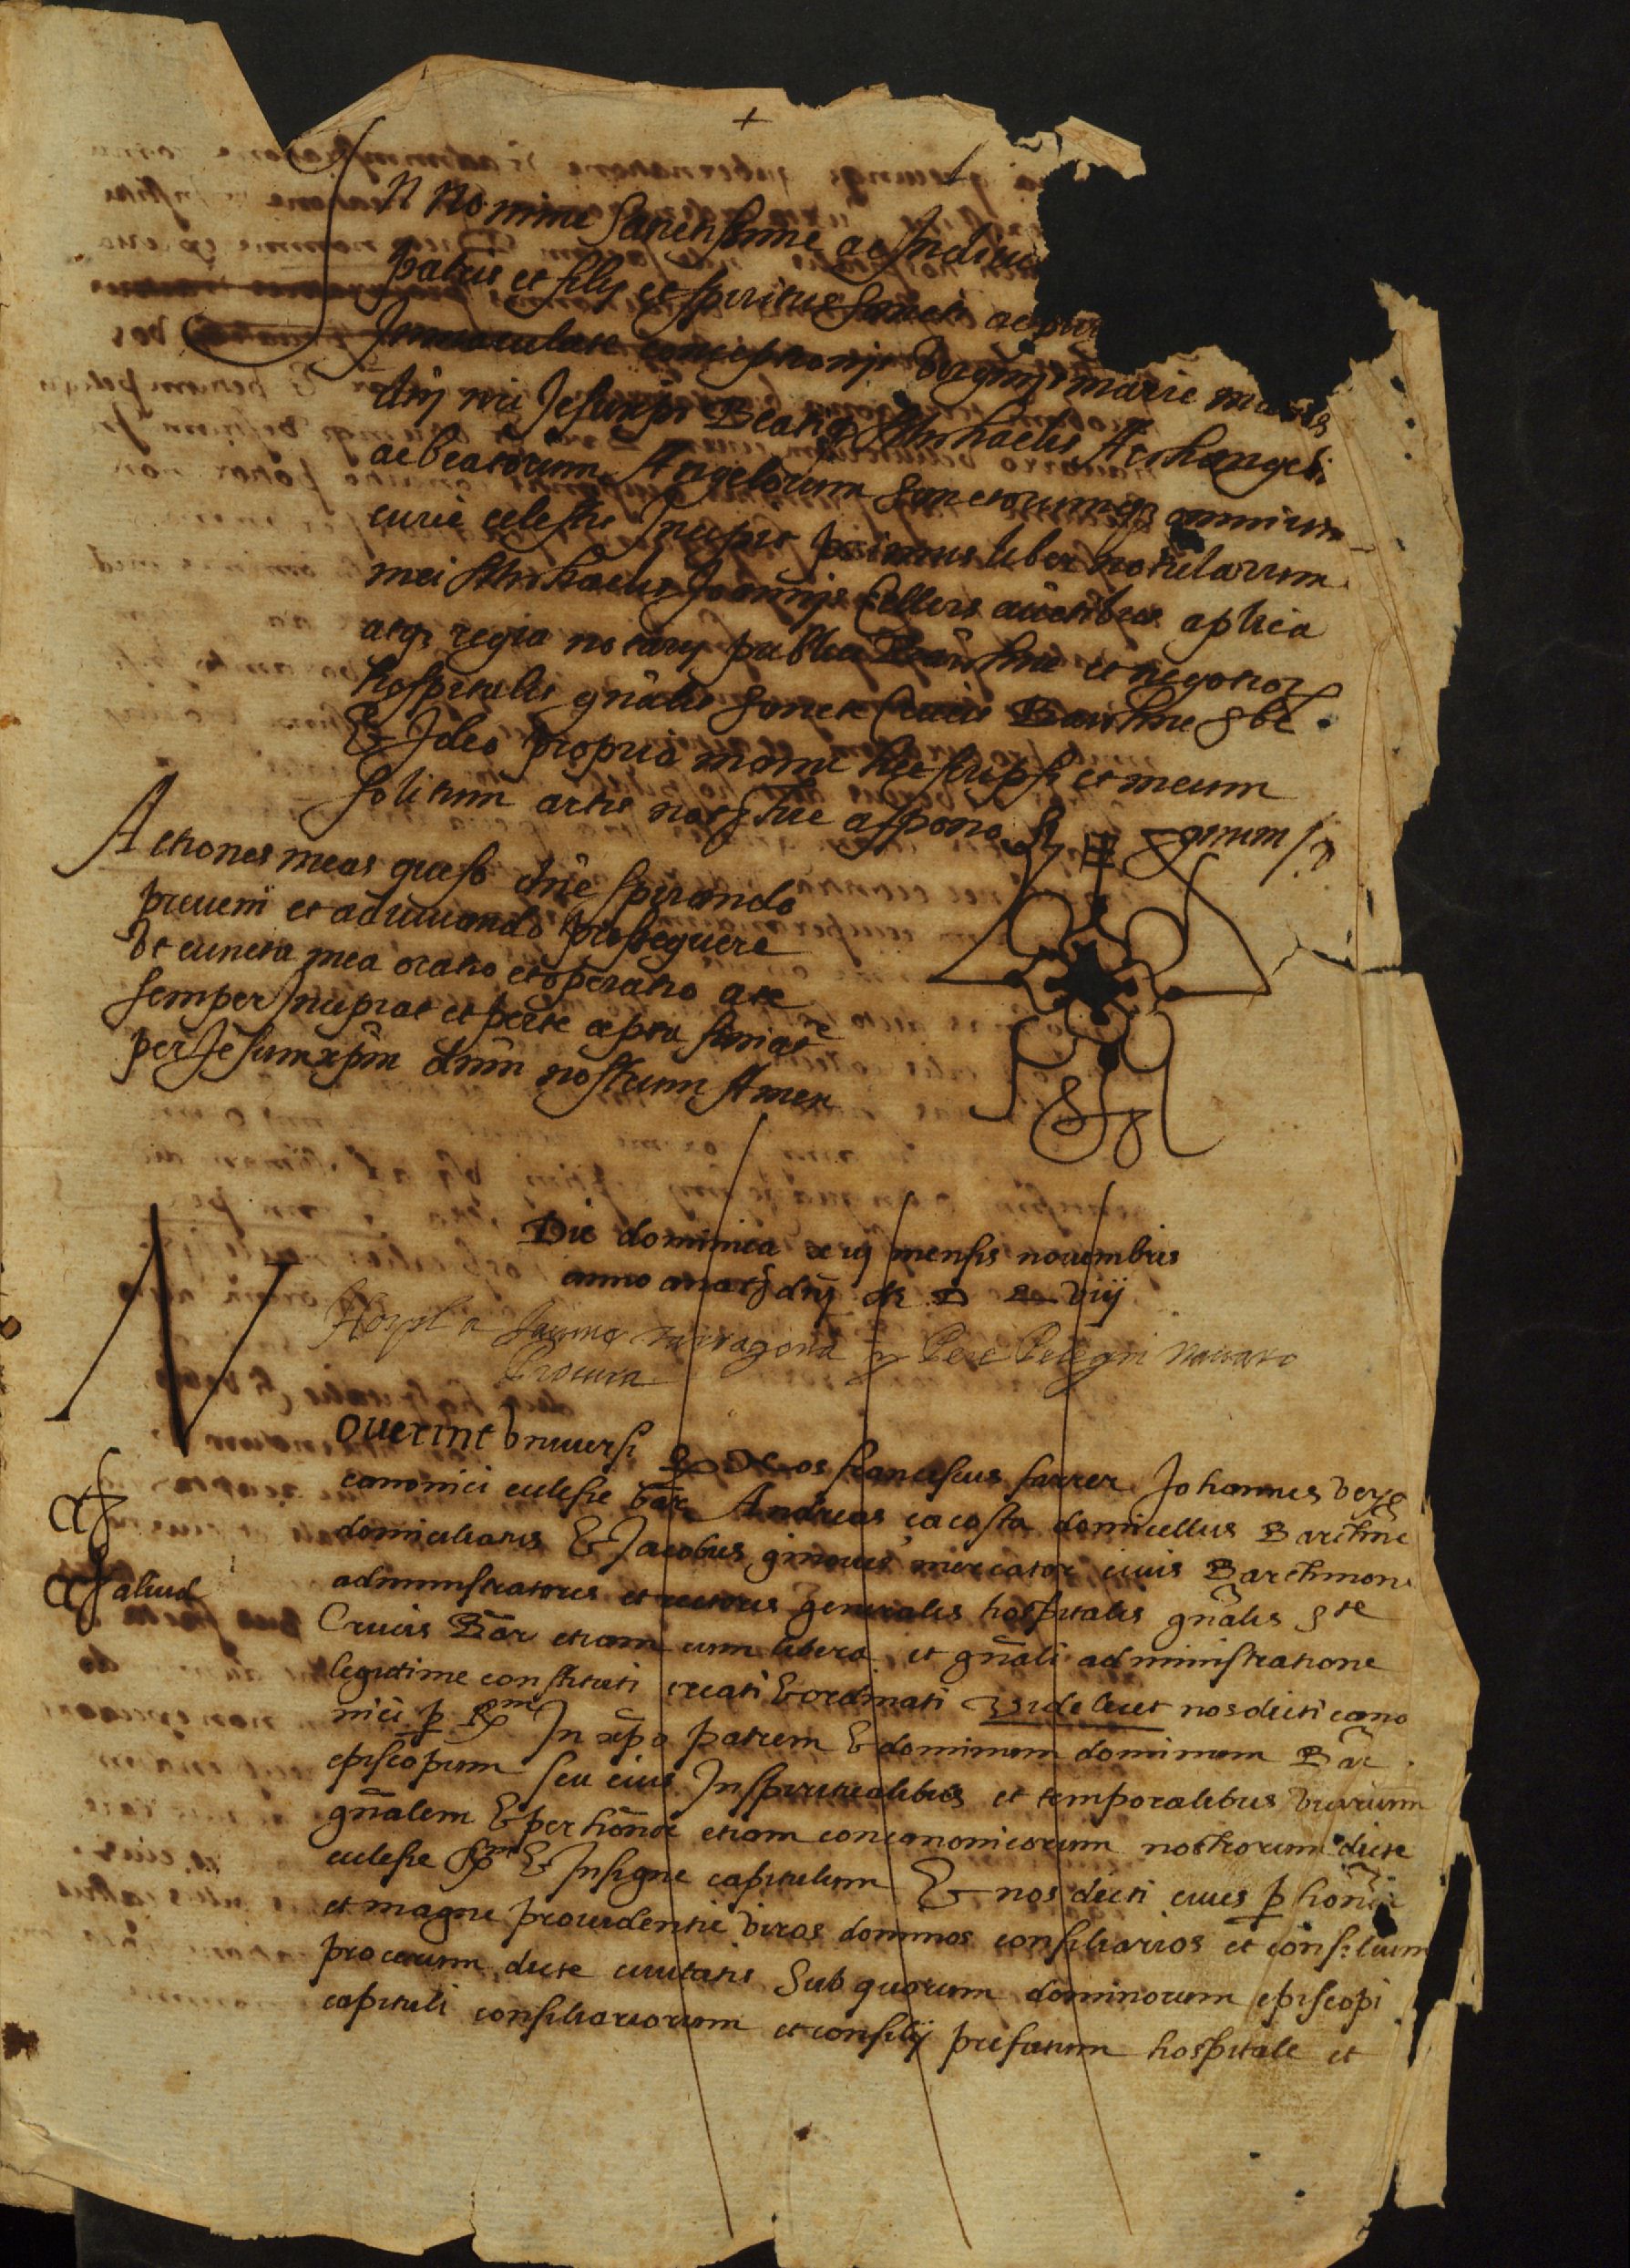 +
In nomine Sanctissime ac Indiui
patris et filij et spiritus Sancti ac pur
Immaculate conceptionis virginis marie matris
dnj nri Jesuxpi Beatiq Michaelis Archangeli
ac beatorum Angelorum Sanctorumq omnium
curie celestis Incipit primus liber notularum
mei Michaelis Joannis Celleris auctibus aplica
atq regia notarij publici Barchne et negotior
hospitalis gnalis Sancte Crucis Barchne
Et Ideo propria manu hec scripsi et meum
solitum artis not hic appono Signum
Actiones meas queso dne spirando
preueni et adiuuando prosequere
Vt cuncta mea oratio et operatio a te
semper Incipiat et per te cepta finiat
per Jesum xpm dnm nostrum Amen
Die dominica mensis nouembris
anno a nat dnj M D L viij
Hospl a Jaume tarragona y Pere Pelegri nauarro
Procura
Nouerint vniuersi Q Nos franciscus farrer Johannes
canonici eclesie bar Andreas çacosta domicellus Barchne
domiciliatus & Jacobus ginoues mercator ciuis Barchinone
aliud
administratores et rectores generales hospitalis gnalis Ste
Crucis Bar etiam cum libera et gnali administratione
legitime constituti creati & ordinati videlicet nos dicti cano
nici p Rm In xpo patrem & dominum dominum Bar
episcopum seu eius In spiritualibus et temporalibus vicarium
gnalem & per honor etiam concanonicorum nostrorum dicte
eclesie & Insigne capitulum Et nos dicti ciues p honor
et magne prouidentie viros dominos consiliarios et consilium
procerum dicte ciuitatis Sub quorum dominorum episcopi
capituli consiliariorum et consilij prefatum hospitale et